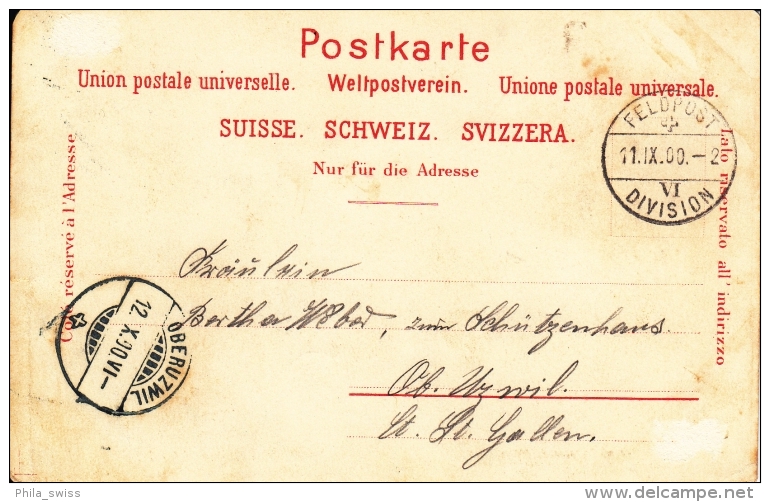 Postkarte
Union postale universelle. Weltpostverein. Unione postale universale.
SUISSE. SCHWEIZ. SVIZZERA.
Nur für die Adresse
Côté réservé à l'Adresse
Lato riservato all' indirizzo
FELDPOST
11.IX.00.-2
VI
DIVISION
Fräulein
Bertha Weber, zum Schützenhaus
Ob. Uzwil.
Ct. St. Gallen.
12.X.00.VI-
OBERUZWIL
Phila_swiss
delcampe.net